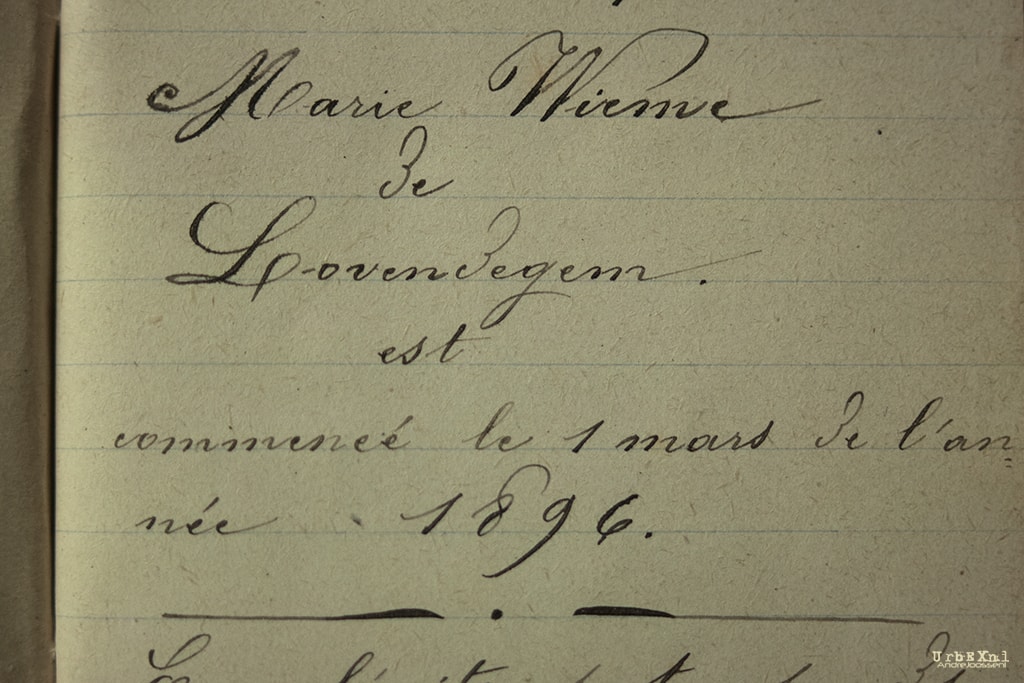 Marie Wieme
de
Lovendegem.
est
commencé le 1 mars de l'an=
née 1896.
UrbEXnl
AndreJoosseni